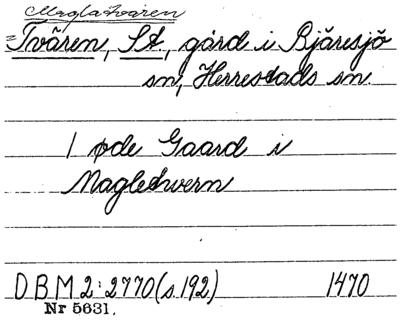 Maglatvären
=Tvären, St., gård i Bjäresjö
sn, Herrestads sn.
1 øde Gaard i
Magletwern
DBM 2:2770 (s.192) 1470
Nr 5631.